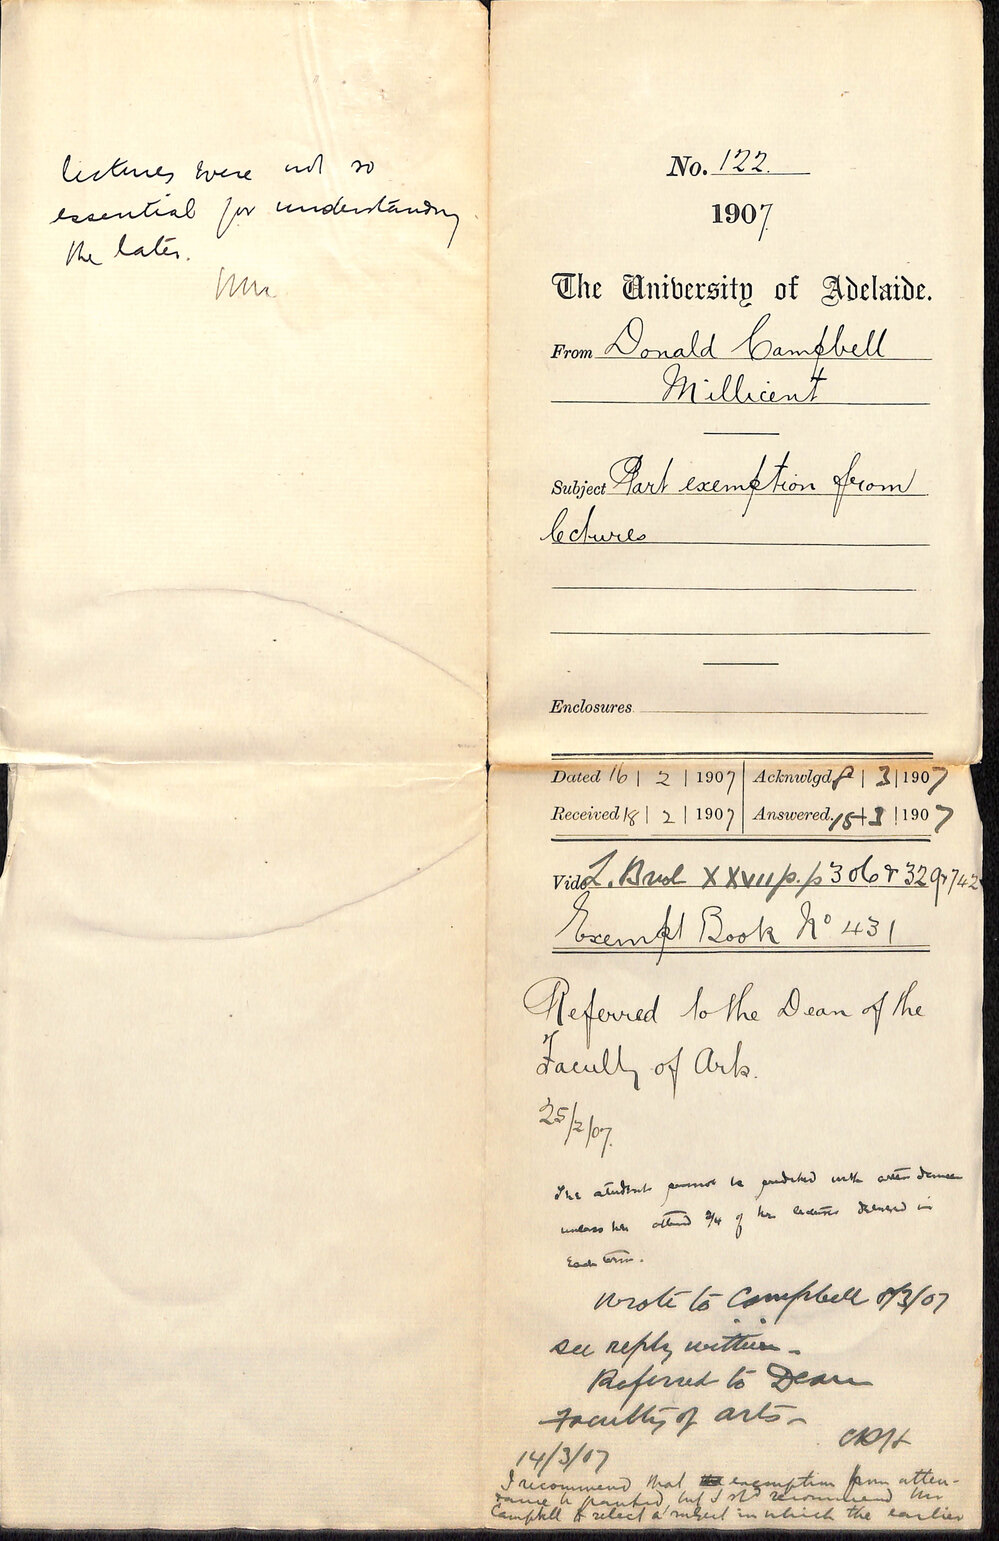 lectures were not so
essential for understanding
the later.
No. 122.
1907
The University of Adelaide.
From Donald Campbell
Millicent
Subject Part exemption from
lectures
Enclosures
Dated 16 | 2 | 1907 Acknwlgd. 8 | 3 | 1907
Received 18 | 2 | 1907 Answered. 15 | 3 | 1907
Vide L. Book XXVII p.p 306 & 329 & 742
Exempt Book No 431
Referred to the Dean of the
Faculty of Arts.
25/2/07.
The student cannot be credited with attendance
unless he attend 3/4 of the lectures delivered in
each term.
Wrote to Campbell 8/3/07
see reply within -
Referred to Dean
Faculty of Arts -
CRH
14/3/07
I recommend that exemption from atten-
dance be granted, but I shd recommend Mr
Campbell to select a subject in which the earlier